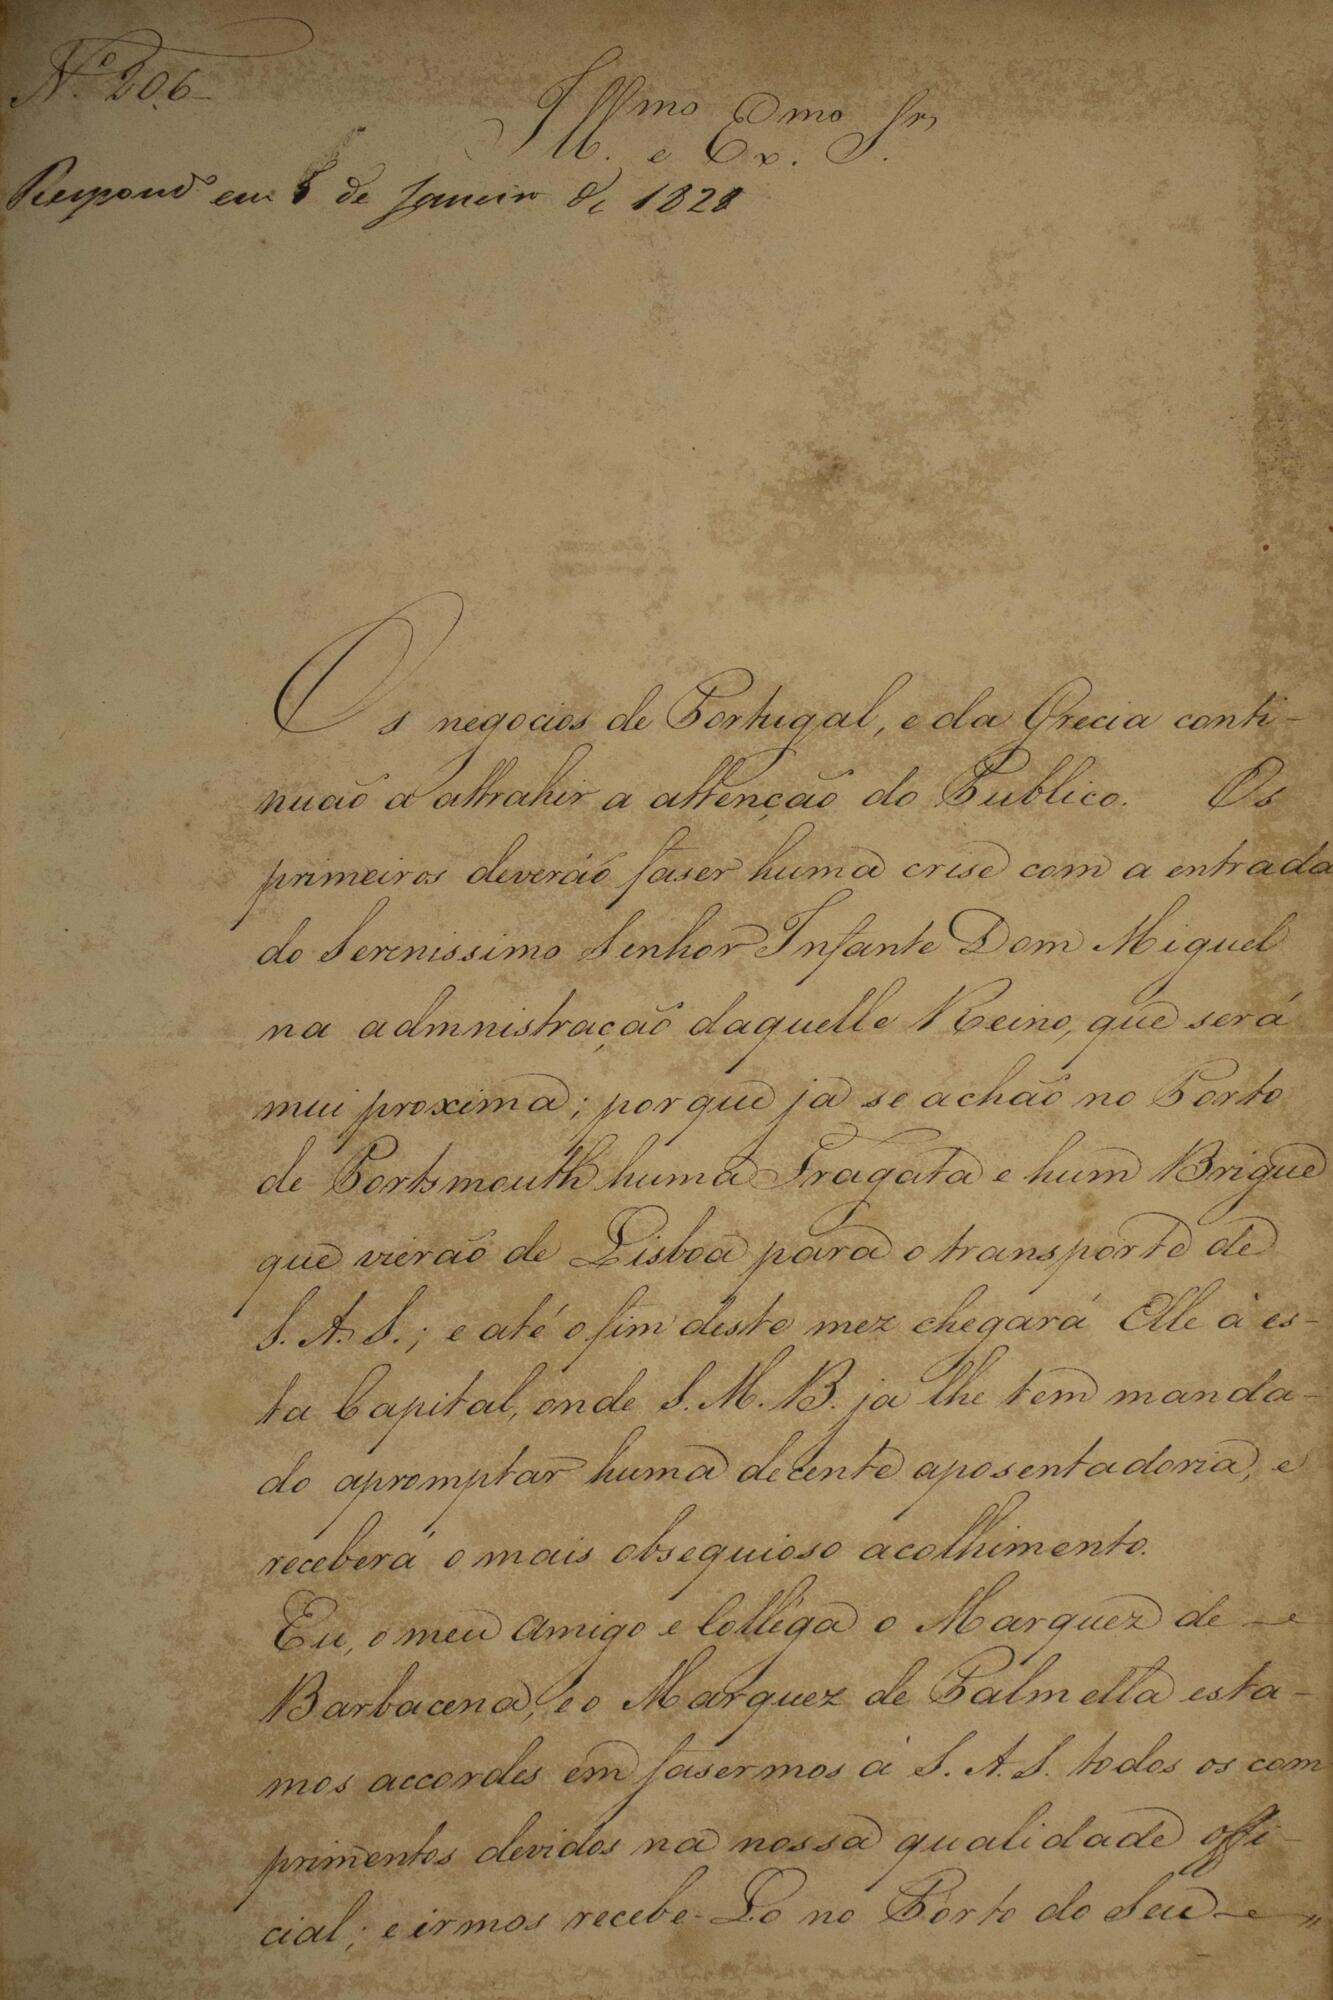 Nº 206
Ill.mo e Ex.mo Sr.
Respondº em 8 de Janeiro de 1828
Os negocios de Portugal, e da Grecia conti-
nuaõ a attrahir a attençaõ do Publico. Os
primeiros deveráõ faser huma crise com a entrada
do Serenissimo Senhor Infante Dom Miguel
na admnistraçaõ daquelle Reino, que será
mui proxima; por que ja se achaõ no Porto
de Portsmouth huma Fragata e hum Brigue
que vieraõ de Lisboa para o transporte de
S. A. S.; e até o fim deste mez chegará Elle à es-
ta Capital, onde S. M. B. ja lhe tem manda-
do apromptar huma decente aposentadoria, e
receberá o mais obsequioso acolhimento.
Eu, o meu amigo e Collega o Marquez de
Barbacena, e o Marquez de Palmella esta-
mos accordes em fasermos à S. A. S. todos os com
primentos devidos na nossa qualidade offi-
cial; e irmos recebe-Lo no Porto do Seu